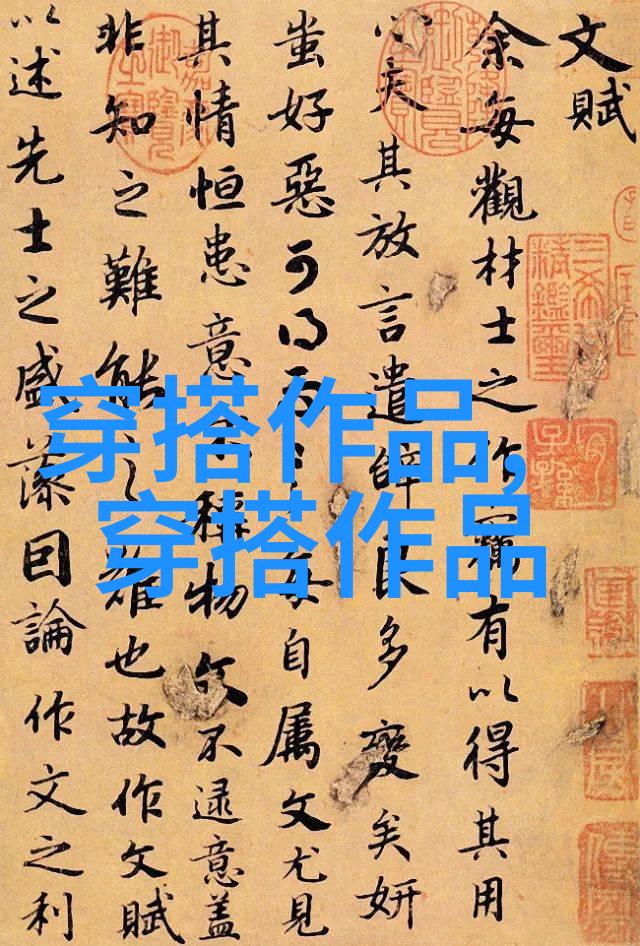 文賦
余每觀材士之作竊有以得其用
心夫其放言遣辭良多變矣妍
蚩好惡可得而言每自属文尤見
其情恒患意不稱物文不逮意盖
非知之難能之難也故作文賦
以述先士之盛藻因論作文之利
穿搭作品,
穿搭作品
三希堂
精鑑璽
宜
子孫